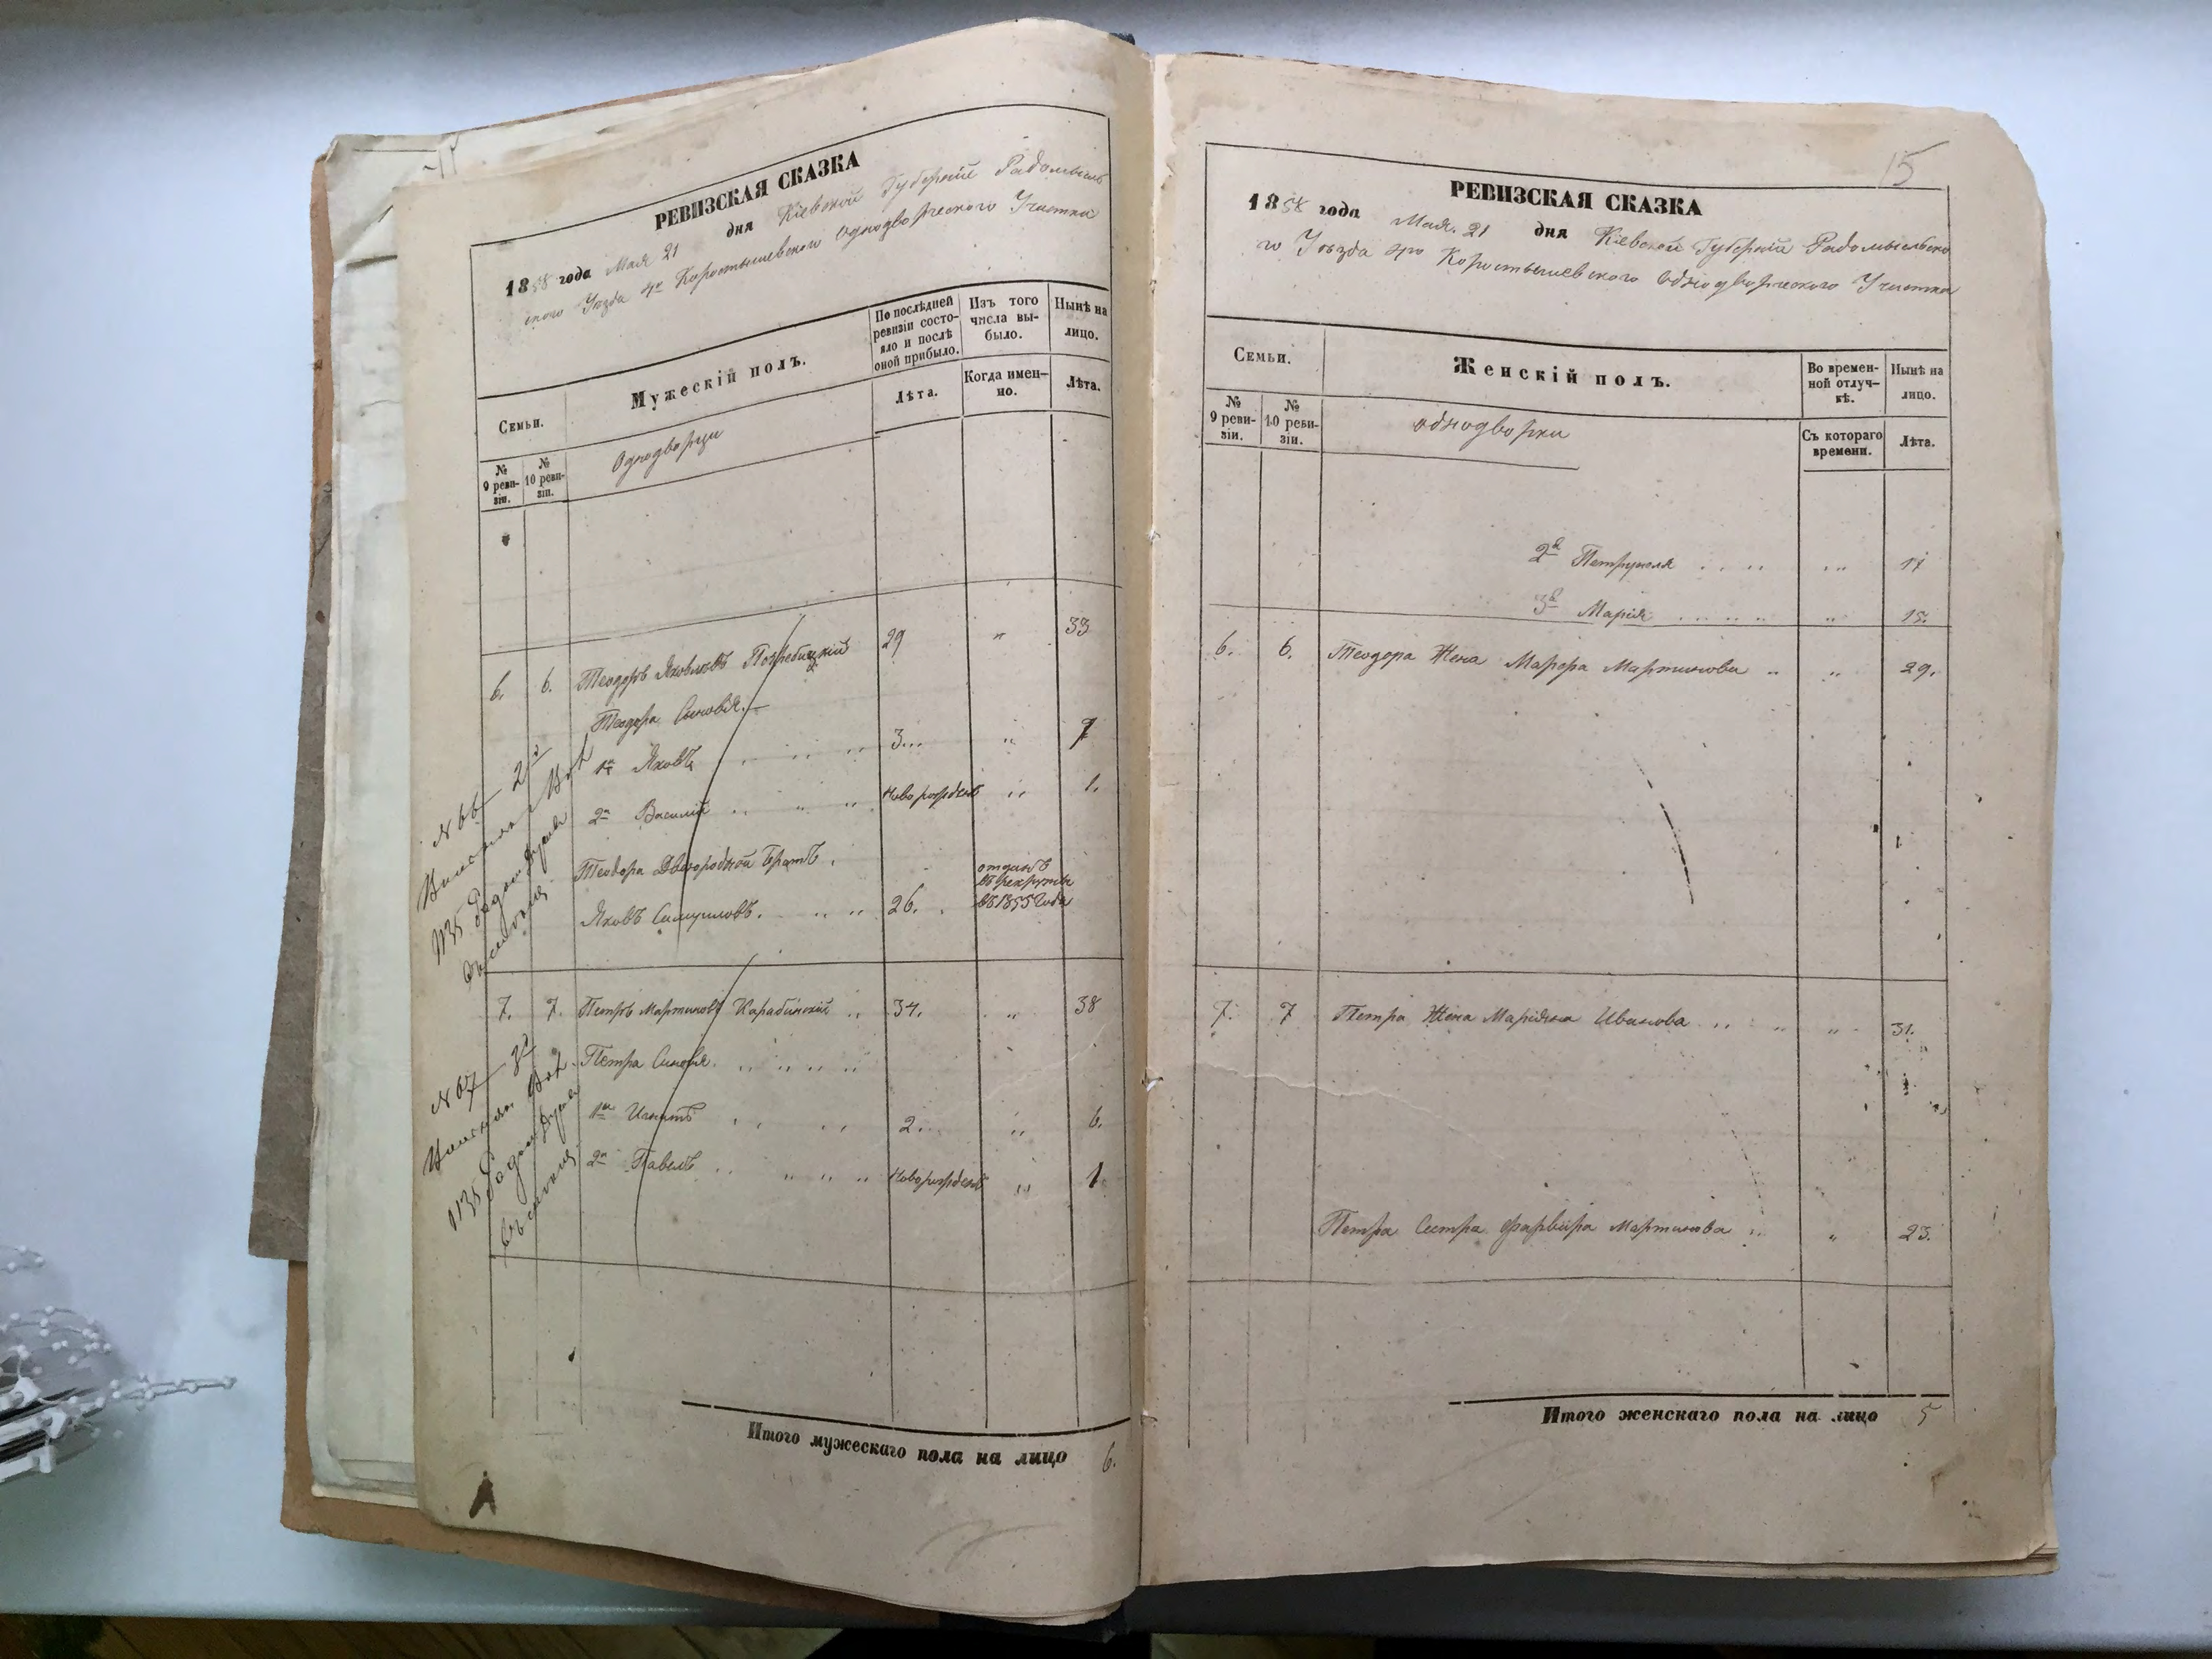 РЕВИЗСКАЯ СКАЗКА
1858 года Мая 21 дня Кіевской Губерніи Радомысль
ского Уѣзда 4го Коростышевского Однодворческого Участка
Семьи.
Мужескій полъ.
По послѣдней ревизіи состояло и послѣ оной прибыло.
Изъ того числа выбыло.
Нынѣ на лицо.
№ 9 ревизіи.
№ 10 ревизіи.
Однодворци
Лѣта.
Когда именно.
Лѣта.
6. 6. Теодоръ Яковлевъ 29 " 33
Теодора Сыновья.
1й Яковъ 3... " 7
2й Василій .. " .. новорожденъ " 1.
Теодора Двоюродной Братъ.
отданъ
въ рекруты
въ 1855 года
Яковъ Самуиловъ. 26.
№ 66 2й
1135
7. 7. Петръ Мартиновъ Карабинскій .. 34. " 38
Петра Сыновья.
1й Игнатъ 2... " 6.
2й Павелъ .. " " .. новорожденъ " 1
№ 67
1135
Итого мужескаго пола на лицо 6.
15
РЕВИЗСКАЯ СКАЗКА
1858 года Мая. 21 дня Кіевской Губерніи Радомысльско
го Уѣзда 4го Коростышевского Однодворческого Участка
Семьи.
Женскій полъ.
Во временной отлучкѣ.
Нынѣ на лицо.
№ 9 ревизіи.
№ 10 ревизіи.
однодворки
Съ котораго времени.
Лѣта.
2я Петрунеля .. .. " 17
3я Марія .. .. .. " 15.
6. 6. Теодора Жена Мартинова .. " 29.
7. 7 Петра Жена Маріяна Иванова .. " 31.
Петра Сестра Мартинова .. " 23.
Итого женскаго пола на лицо 5